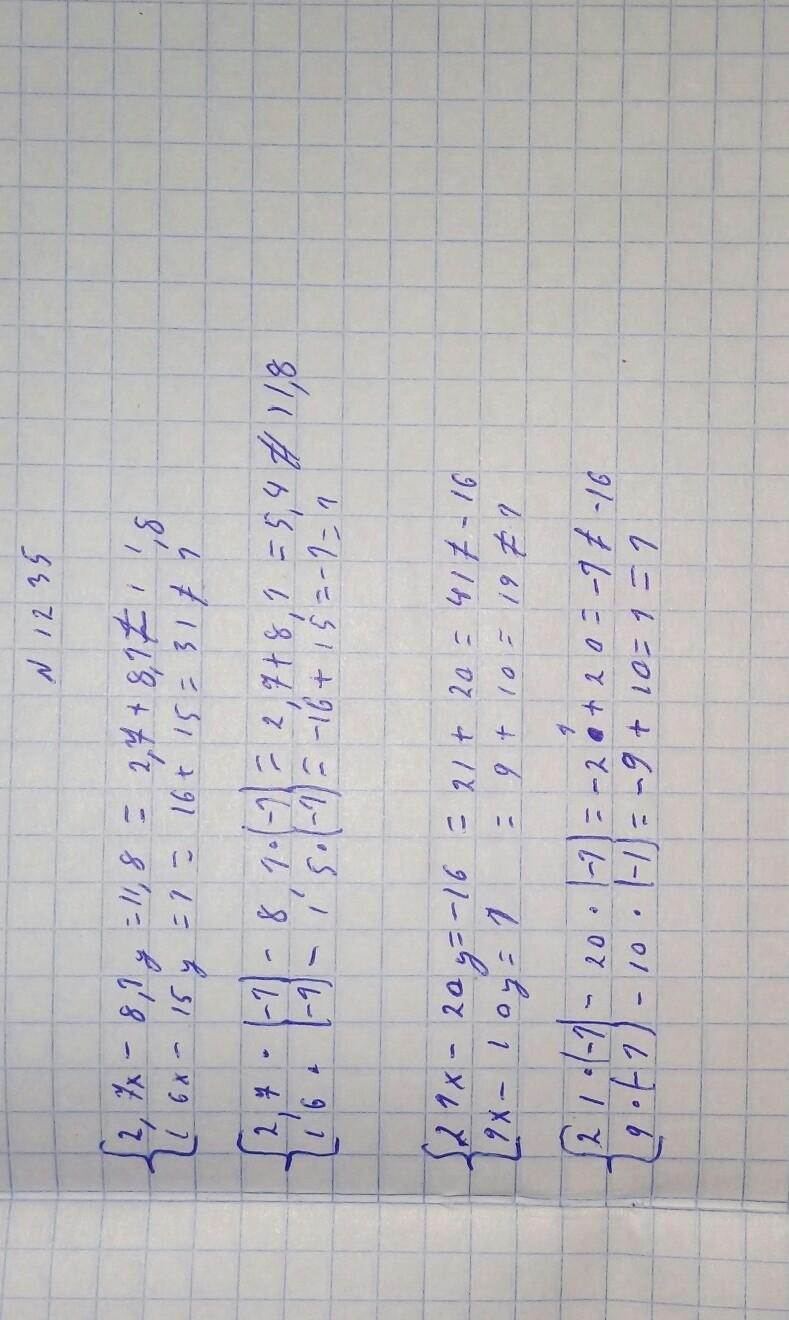 N 1235
{2,7x - 8,1y = 11,8 = 2,7 + 8,1 ≠ 11,8
16x - 15y = 1 = 16 + 15 = 31 ≠ 1
{2,7 · (-1) - 8,1 · (-1) = 2,7 + 8,1 = 5,4 ≠ 11,8
16 · (-1) - 15 · (-1) = -16 + 15 = -1 = 1
{21x - 20y = -16 = 21 + 20 = 41 ≠ -16
9x - 10y = 1 = 9 + 10 = 19 ≠ 1
{21 · (-1) - 20 · (-1) = -21 + 20 = -1 ≠ -16
9 · (-1) - 10 · (-1) = -9 + 10 = 1 = 1